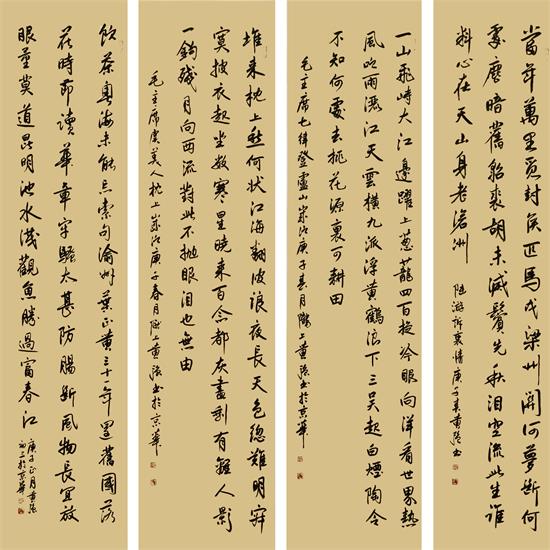 當年萬里覓封侯匹馬戍梁州關河夢斷何
處塵暗舊貂裘胡未滅鬢先秋泪空流此生誰
料心在天山身老滄洲 陸游訴衷情庚子春黃强书
一山飛峙大江邊躍上葱蘢四百旋冷眼向洋看世界熱
風吹雨灑江天雲橫九派浮黃鶴浪下三吳起白煙陶令
不知何處去桃花源裏可耕田
毛主席七律登廬山歲次庚子春月隴上黃强书於京華
堆來枕上愁何狀江海翻波浪夜長天色總難明寂
寞披衣起坐數寒星曉來百念都灰盡剩有離人影
一鈎殘月向西流對此不抛眼泪也無由
毛主席虞美人枕上歲次庚子春月隴上黃强书於京華
飲茶粵海未能忘索句渝州葉正黃三十一年還舊國落
花時節讀華章牢騷太甚防腸斷風物長宜放
眼量莫道昆明池水淺觀魚勝過富春江 庚子正月黃强
於京華